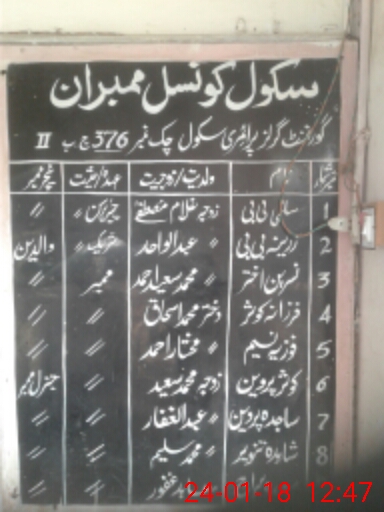 سکول کونسل ممبران
گورنمنٹ گرلز پرائمری سکول چک نمبر 376 ج ب II
نمبر شمار نام ولدیت/زوجیت عہدہ/حیثیت
1 سلمی بی بی زوجہ غلام مصطفے چیئرپرسن "
2 زرینہ بی بی " عبدالواحد والدین
3 نسرین اختر " محمد سعید احمد ممبر "
4 فرزانہ کوثر دختر محمد اسحاق " "
5 فوزیہ نسیم " مختار احمد " "
6 کوثر پروین زوجہ محمد سعید " جنرل ممبر
7 ساجدہ پروین " عبدالغفار " "
8 شاہدہ تنویر " محمد سلیم " "
غفور " "
24-01-18 12:47